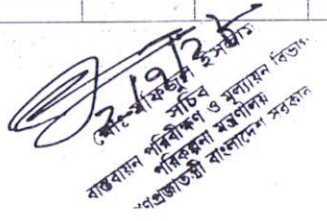 ২/৭/২৫
ইসলাম
সচিব
বাস্তবায়ন পরিবীক্ষণ ও মূল্যায়ন বিভাগ
পরিকল্পনা মন্ত্রণালয়
গণপ্রজাতন্ত্রী বাংলাদেশ সরকার